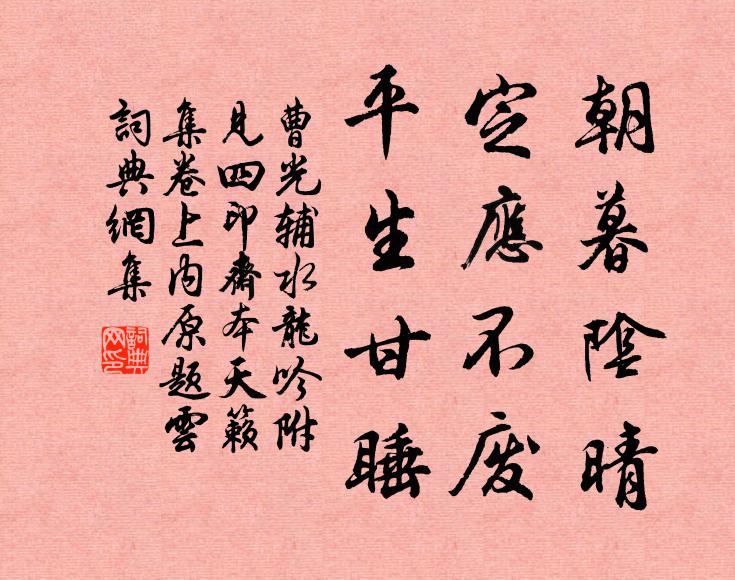 朝暮陰晴
定應不废
平生甘睡
曹光辅水龍吟附
見四印齋本天籁
集卷上内原题雲
詞典網集
詞典网印